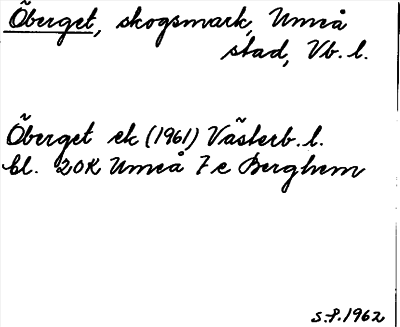 Öberget, skogsmark, Umeå
stad, Vb. l.
Öberget ek (1961) Västerb. l.
bl. 20K Umeå 7c Berghem
S.P. 1962